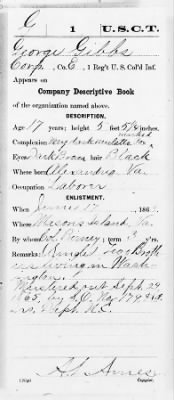 G | 1 | U.S.C.T.
George Gibbs
Corp, Co. E, 1 Reg't U. S. Col'd Inf.
Appears on
Company Descriptive Book
of the organization named above.
DESCRIPTION.
Age 17 years; height 5 feet 5 1/4 inches.
Complexion very dark mulatto
marked
Eyes Dark Brown hair Black
Where born Alexandria Va.
Occupation Laborer
ENLISTMENT.
When June 17, 1863.
Where Masons Island, Va.
By Col Birney; term 3 y'rs.
Remarks: Single. Two Broth
ers living in Wash
ington
Mustered out Sept. 29
1865. by S.O. No 179